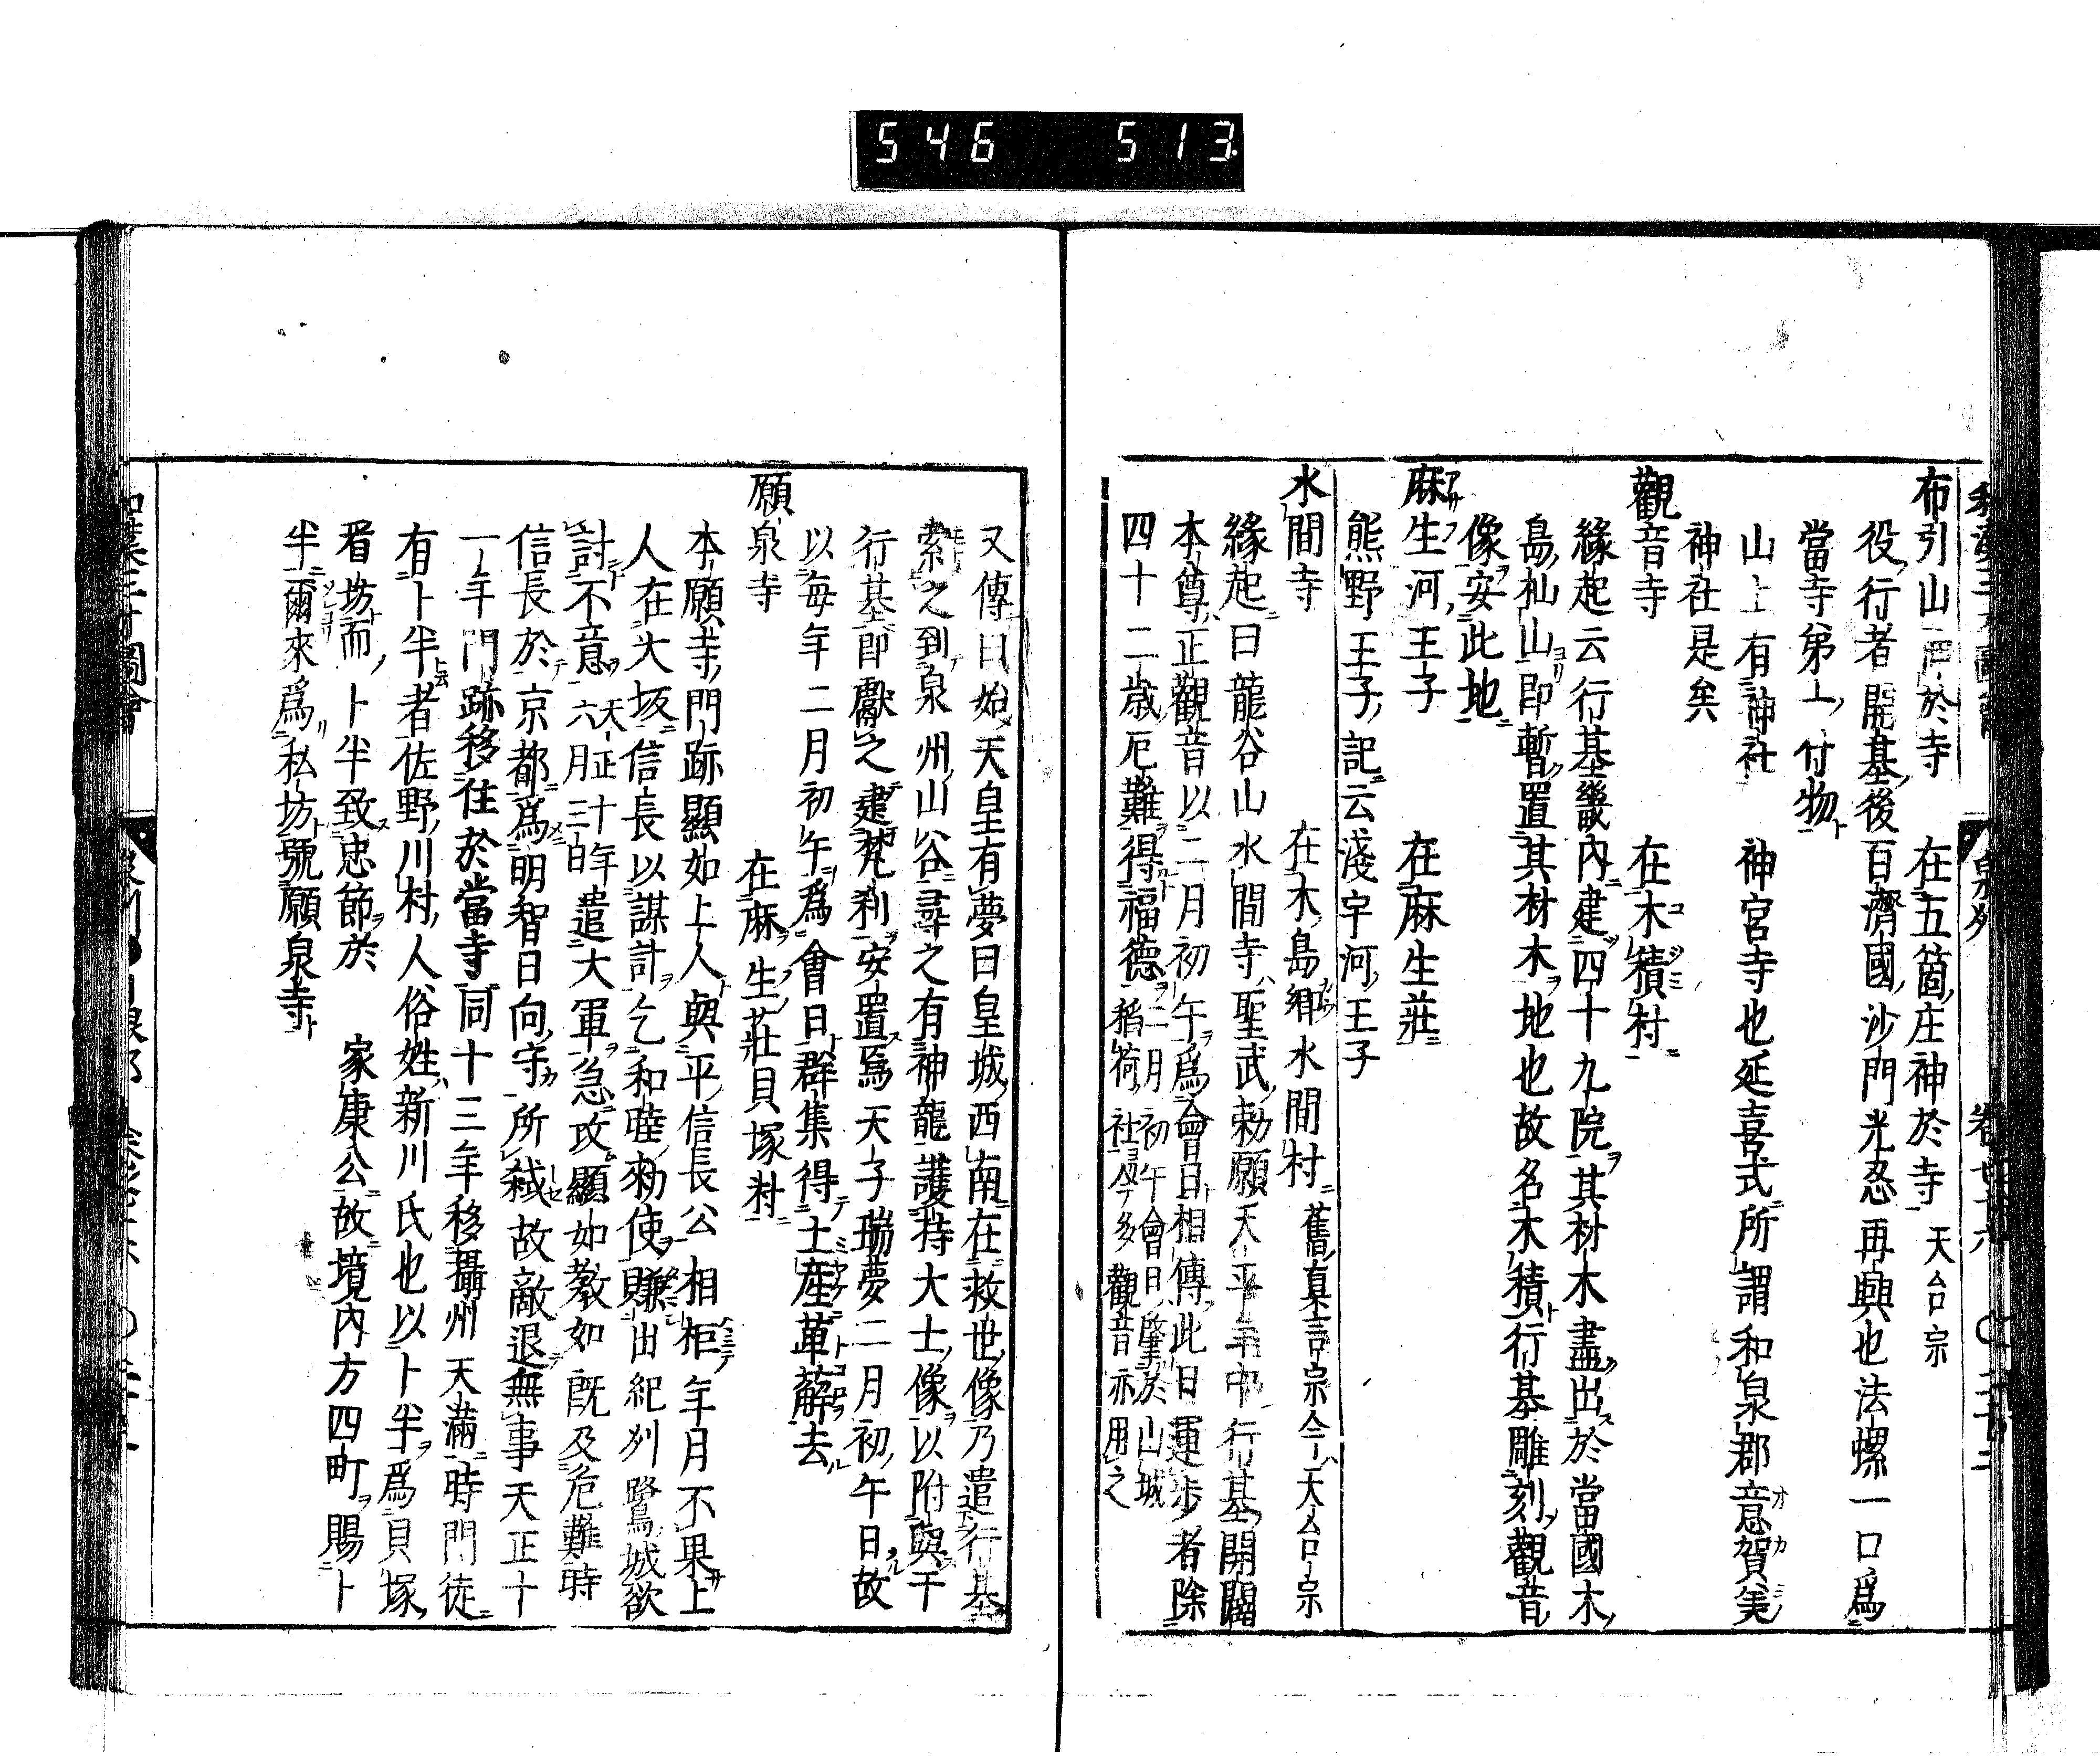 546 513
布引山神於寺 在五箇庄神於寺 天台宗
役行者開基後百濟國沙門光忍再興也法螺一口爲
當寺第一什物
山上有神社 神宮寺也延喜式所謂和泉郡意賀美
神社是矣
觀音寺 在木積村
緣起云行基畿內建四十九院其材木盡出於當國木
島杣山即暫置其材木地也故名木積行基雕刻觀音
像安此地
麻生河王子 在麻生莊
熊野王子記云淺宇河王子
水間寺 在木島郷水間村 舊眞言宗今天台宗
緣起曰龍谷山水間寺聖武勅願天平年中行基開闢
本尊正觀音以二月初午爲會日相傳此日運步者除
四十二歲厄難得福德 二月初午會日肇於山城稻荷社今多觀音亦用之
又傳曰始天皇有夢曰皇城西南在救世像乃遣行基
索之到泉州山谷尋之有神龍護持大士像以附與干
行基即獻之建梵刹安置焉天子瑞夢二月初午日故
以每年二月初午爲會日群集得土產草薢去
願泉寺 在麻生莊貝塚村
本願寺門跡顯如上人與平信長公相柜年月不果上
人在大坂信長以謀計乞和睦勅使賺出紀州鷺城欲
討不意 天正十年六月三日 遣大軍急攻顯如教如既及危難時
信長於京都爲明智日向守所弑故敵退無事天正十
一年門跡移住於當寺同十三年移攝州天滿時門徒
有卜半者佐野川村人俗姓新川氏也以卜半爲貝塚
看坊而卜半致忠節於 家康公故境內方四町賜卜
半爾來爲私坊號願泉寺